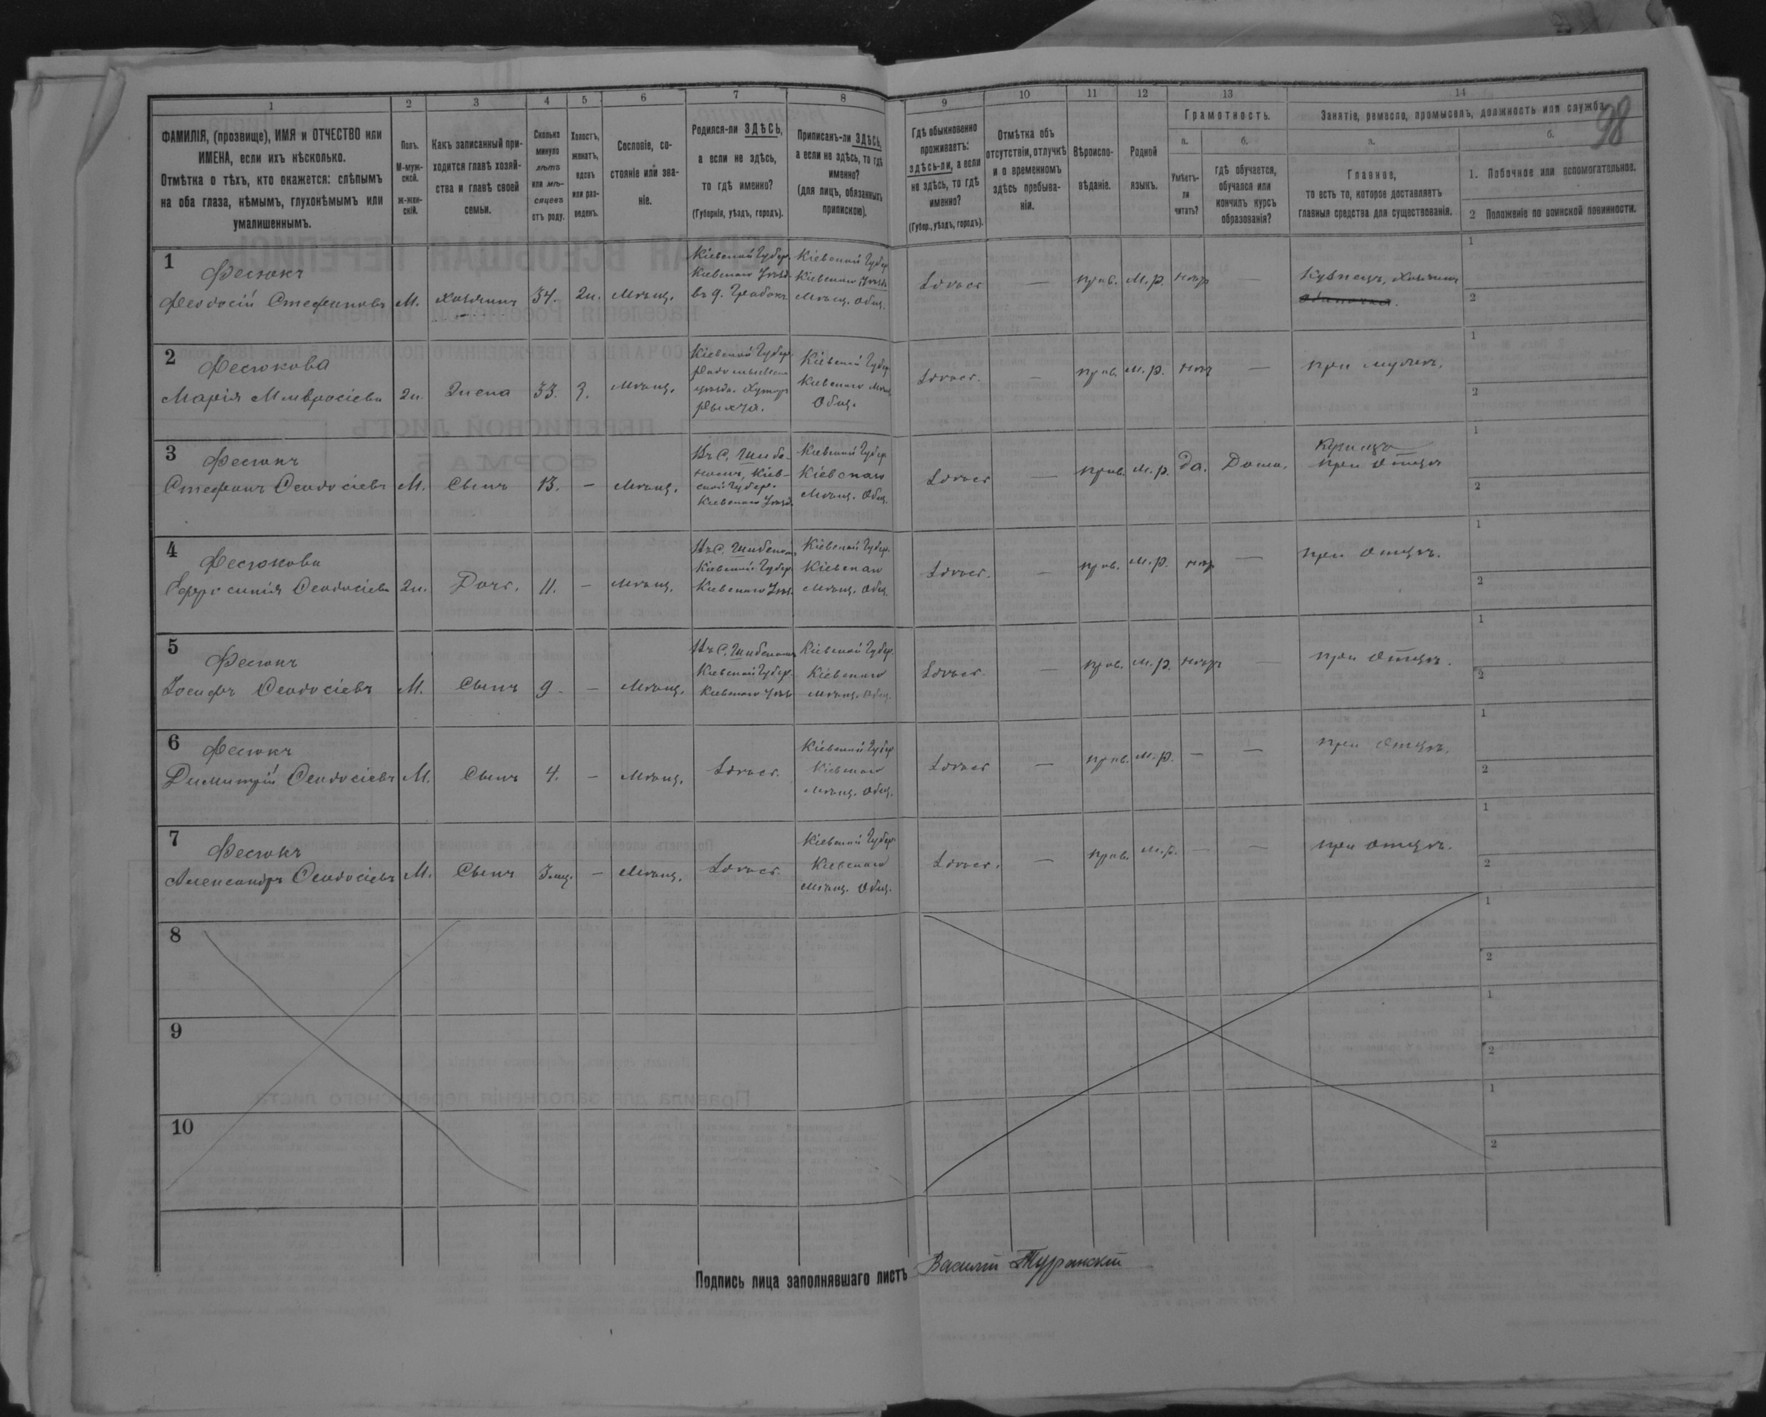 98
1 2 3 4 5 6 7 8 9 10 11 12 13 14
ФАМИЛІЯ, (прозвище), ИМЯ и ОТЧЕСТВО или
ИМЕНА, если ихъ нѣсколько.
Отмѣтка о тѣхъ, кто окажется: слѣпымъ
на оба глаза, нѣмымъ, глухонѣмымъ или
умалишеннымъ.
Полъ.
М-муж-
ской.
Ж-жен-
скій.
Какъ записанный при-
ходится главѣ хозяй-
ства и главѣ своей
семьи.
Сколько
минуло
лѣтъ
или мѣ-
сяцевъ
отъ роду.
Холостъ,
женатъ,
вдовъ
или раз-
веденъ.
Сословіе, со-
стояніе или зва-
ніе.
Родился-ли ЗДѢСЬ,
а если не здѣсь,
то гдѣ именно?
(Губернія, уѣздъ, городъ).
Приписанъ-ли ЗДѢСЬ,
а если не здѣсь, то гдѣ
именно?
(для лицъ, обязанныхъ
припискою).
Гдѣ обыкновенно
проживаетъ:
здѣсь-ли, а если
не здѣсь, то гдѣ
именно?
(Губер., уѣздъ, городъ).
Отмѣтка объ
отсутствіи, отлучкѣ
и о временномъ
здѣсь пребыва-
ніи.
Вѣроиспо-
вѣданіе.
Родной
языкъ.
Грамотность.
а.
Умѣетъ-
ли
читать?
б.
Гдѣ обучается,
обучался или
кончилъ курсъ
образованія?
Занятіе, ремесло, промыселъ, должность или служба.
а.
Главное,
то есть то, которое доставляетъ
главныя средства для существованія.
б.
1. Побочное или вспомогательное.
2 Положеніе по воинской повинности.
1
Фесюкъ
Феодосій Стефановъ М. хозяинъ 34. Ж. Мѣщ.
Кіевской Губер.
Кіевскаго Уѣзда
Кіевской Губер
Кіевскаго Уѣзда
Мѣщ. Общ.
Здѣсь — прав. М.р. нѣтъ —
Кузнецъ, хозяинъ
1
2
2
Фесюкова
Марія Амвросіева Ж. Жена 33. З. Мѣщ.
Кіевской Губер.
Радомысльскаго
уѣзда. Хуторъ
Кіевской Губер
Кіевскаго Мѣщ
Общ.
Здѣсь. — прав. М.р. нѣтъ — при мужѣ.
1
2
3
Фесюкъ
Стефанъ Феодосіевъ М. Сынъ 13. — Мѣщ.
Кіевскаго Уѣзд.
Кіевской Губер
Кіевскаго
Мѣщ. Общ
Здѣсь — прав. М.р. да. Дома.
при Отцѣ
1
2
4
Фесюкова
Ефросинія Феодосіева Ж. Дочь. 11. — Мѣщ.
Кіевской Губер.
Кіевскаго Уѣзд.
Кіевской Губер.
Кіевскаго
Мѣщ. Общ
Здѣсь. — прав. М.р. нѣтъ — при Отцѣ.
1
2
5
Фесюкъ
Іосифъ Феодосіевъ М. Сынъ 9 — Мѣщ.
Кіевской Губер.
Кіевскаго Уѣзд
Кіевской Губер.
Кіевскаго
Мѣщ. Общ
Здѣсь — прав. М.р. нѣтъ — при Отцѣ.
1
2
6
Фесюкъ
Димитрій Феодосіевъ М. Сынъ 4. — Мѣщ. Здѣсь
Кіевской Губер
Кіевскаго
Мѣщ. Общ.
Здѣсь — прав. М.р. — — при Отцѣ.
1
2
7
Фесюкъ
Александръ Феодосіевъ М. Сынъ 3 мѣс. — Мѣщ. Здѣсь
Кіевской Губер.
Кіевскаго
Мѣщ. Общ.
Здѣсь. — прав. М.р. — — при отцѣ.
1
2
8
1
2
9
1
2
10
1
2
Подпись лица заполнявшаго листъ Василій Туранскій